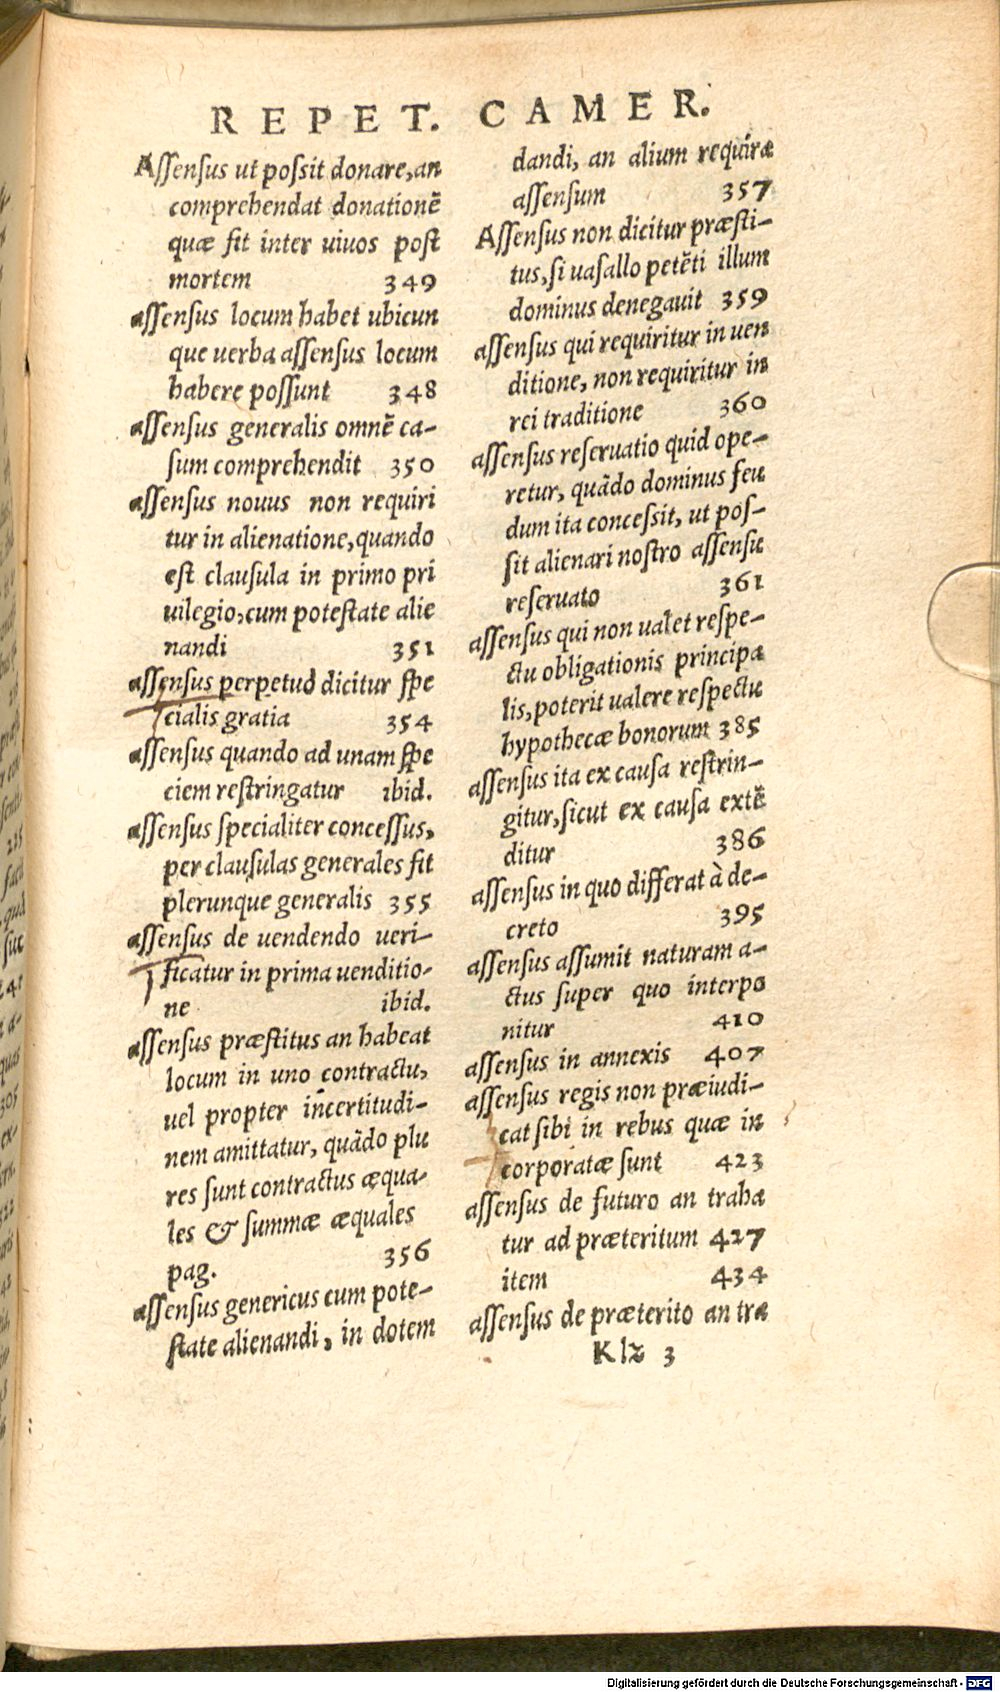 REPET. CAMER.
Assensus ut possit donare, an
comprehendat donationē
quæ fit inter uiuos post
mortem 349
assensus locum habet ubicun
que uerba assensus locum
habere possunt 348
assensus generalis omnē ca-
sum comprehendit 350
assensus nouus non requiri
tur in alienatione, quando
est clausula in primo pri
uilegio, cum potestate alie
nandi 351
assensus perpetuò dicitur spe
cialis gratia 354
assensus quando ad unam spe
ciem restringatur ibid.
assensus specialiter concessus,
per clausulas generales fit
plerunque generalis 355
assensus de uendendo ueri-
ficatur in prima uenditio-
ne ibid.
assensus præstitus an habeat
locum in uno contractu,
uel propter incertitudi-
nem amittatur, quādo plu
res sunt contractus æqua-
les & summæ æquales
pag. 356
assensus genericus cum pote-
state alienandi, in dotem
dandi, an alium requiræ
assensum 357
Assensus non dicitur præsti-
tus, si uasallo petēti illum
dominus denegauit 359
assensus qui requiritur in uen
ditione, non requiritur in
rei traditione 360
assensus reseruatio quid ope-
retur, quādo dominus feu
dum ita concessit, ut pos-
sit alienari nostro assensu
reseruato 361
assensus qui non ualet respe-
ctu obligationis principa
lis, poterit ualere respectu
hypothecæ bonorum 385
assensus ita ex causa restrin-
gitur, sicut ex causa extē
ditur 386
assensus in quo differat à de-
creto 395
assensus assumit naturam a-
ctus super quo interpo
nitur 410
assensus in annexis 407
assensus regis non præiudi-
cat sibi in rebus quæ in
corporatæ sunt 423
assensus de futuro an traha
tur ad præteritum 427
item 434
assensus de præterito an tra
Klz 3
Digitalisierung gefördert durch die Deutsche Forschungsgemeinschaft - DFG